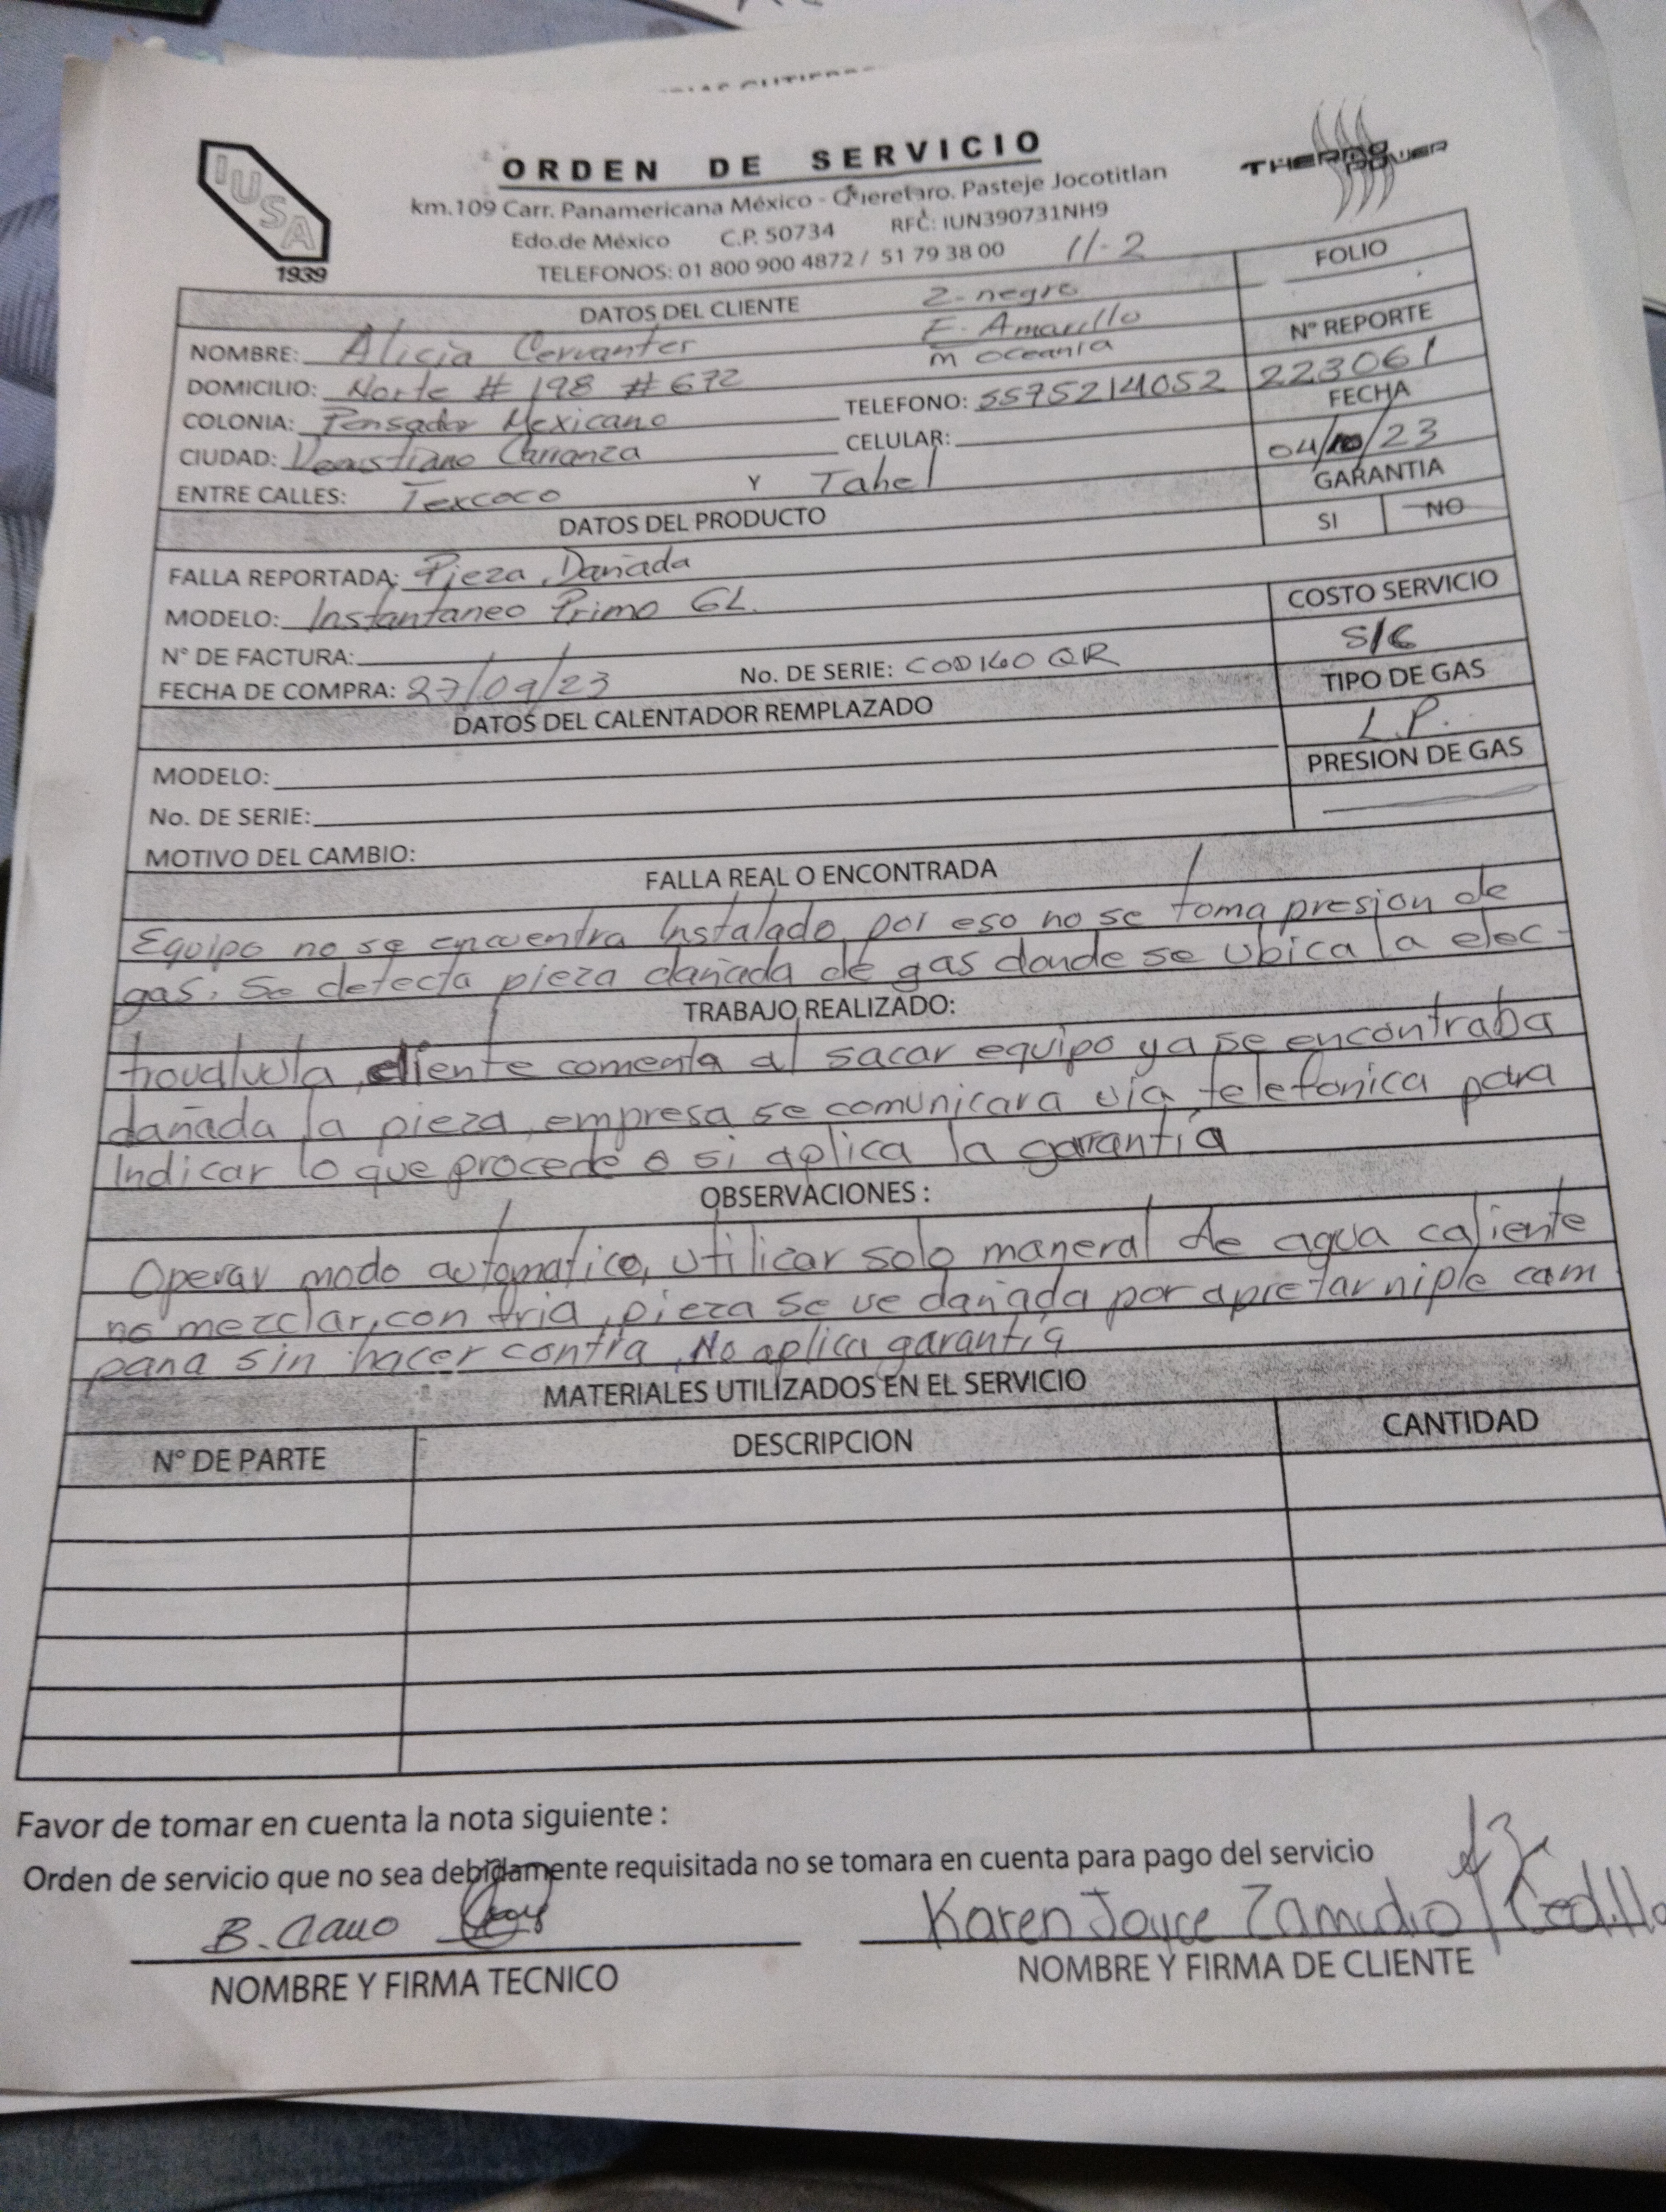 ORDEN DE SERVICIO
IUSA
1939
THERMO POWER
km.109 Carr. Panamericana México - Queretaro. Pasteje Jocotitlan
Edo.de México C.P. 50734 RFC: IUN390731NH9
TELEFONOS: 01 800 900 4872 / 51 79 38 00 11-2
FOLIO
DATOS DEL CLIENTE Z-negro
NOMBRE: Alicia Cervantes E. Amarillo
m oceania
N° REPORTE
DOMICILIO: Norte # 198 # 672 TELEFONO: 5575214052 223061
COLONIA: Pensador Mexicano CELULAR: FECHA
CIUDAD: Venustiano Carranza 04/10/23
ENTRE CALLES: Texcoco Y Tahel GARANTIA
DATOS DEL PRODUCTO SI NO
FALLA REPORTADA: Pieza Dañada
MODELO: Instantaneo Primo 6L. COSTO SERVICIO
N° DE FACTURA: S/C
FECHA DE COMPRA: 27/09/23 No. DE SERIE: CODIGO QR TIPO DE GAS
DATOS DEL CALENTADOR REMPLAZADO L.P.
MODELO: PRESION DE GAS
No. DE SERIE:
MOTIVO DEL CAMBIO:
FALLA REAL O ENCONTRADA
Equipo no se encuentra Instalado, por eso no se toma presion de
gas. Se detecta pieza dañada de gas donde se ubica la elec-
TRABAJO REALIZADO:
trovalvula, cliente comenta al sacar equipo ya se encontraba
dañada la pieza, empresa se comunicara via telefonica para
Indicar lo que procede o si aplica la garantia
OBSERVACIONES :
Operar modo automatico, utilizar solo maneral de agua caliente
no mezclar, con fria, pieza se ve dañada por apretar niple cam
pana sin hacer contra, No aplica garantia
MATERIALES UTILIZADOS EN EL SERVICIO
N° DE PARTE DESCRIPCION CANTIDAD
Favor de tomar en cuenta la nota siguiente :
Orden de servicio que no sea debidamente requisitada no se tomara en cuenta para pago del servicio
B. Karen Joyce Zamudio Cedillo
NOMBRE Y FIRMA TECNICO NOMBRE Y FIRMA DE CLIENTE